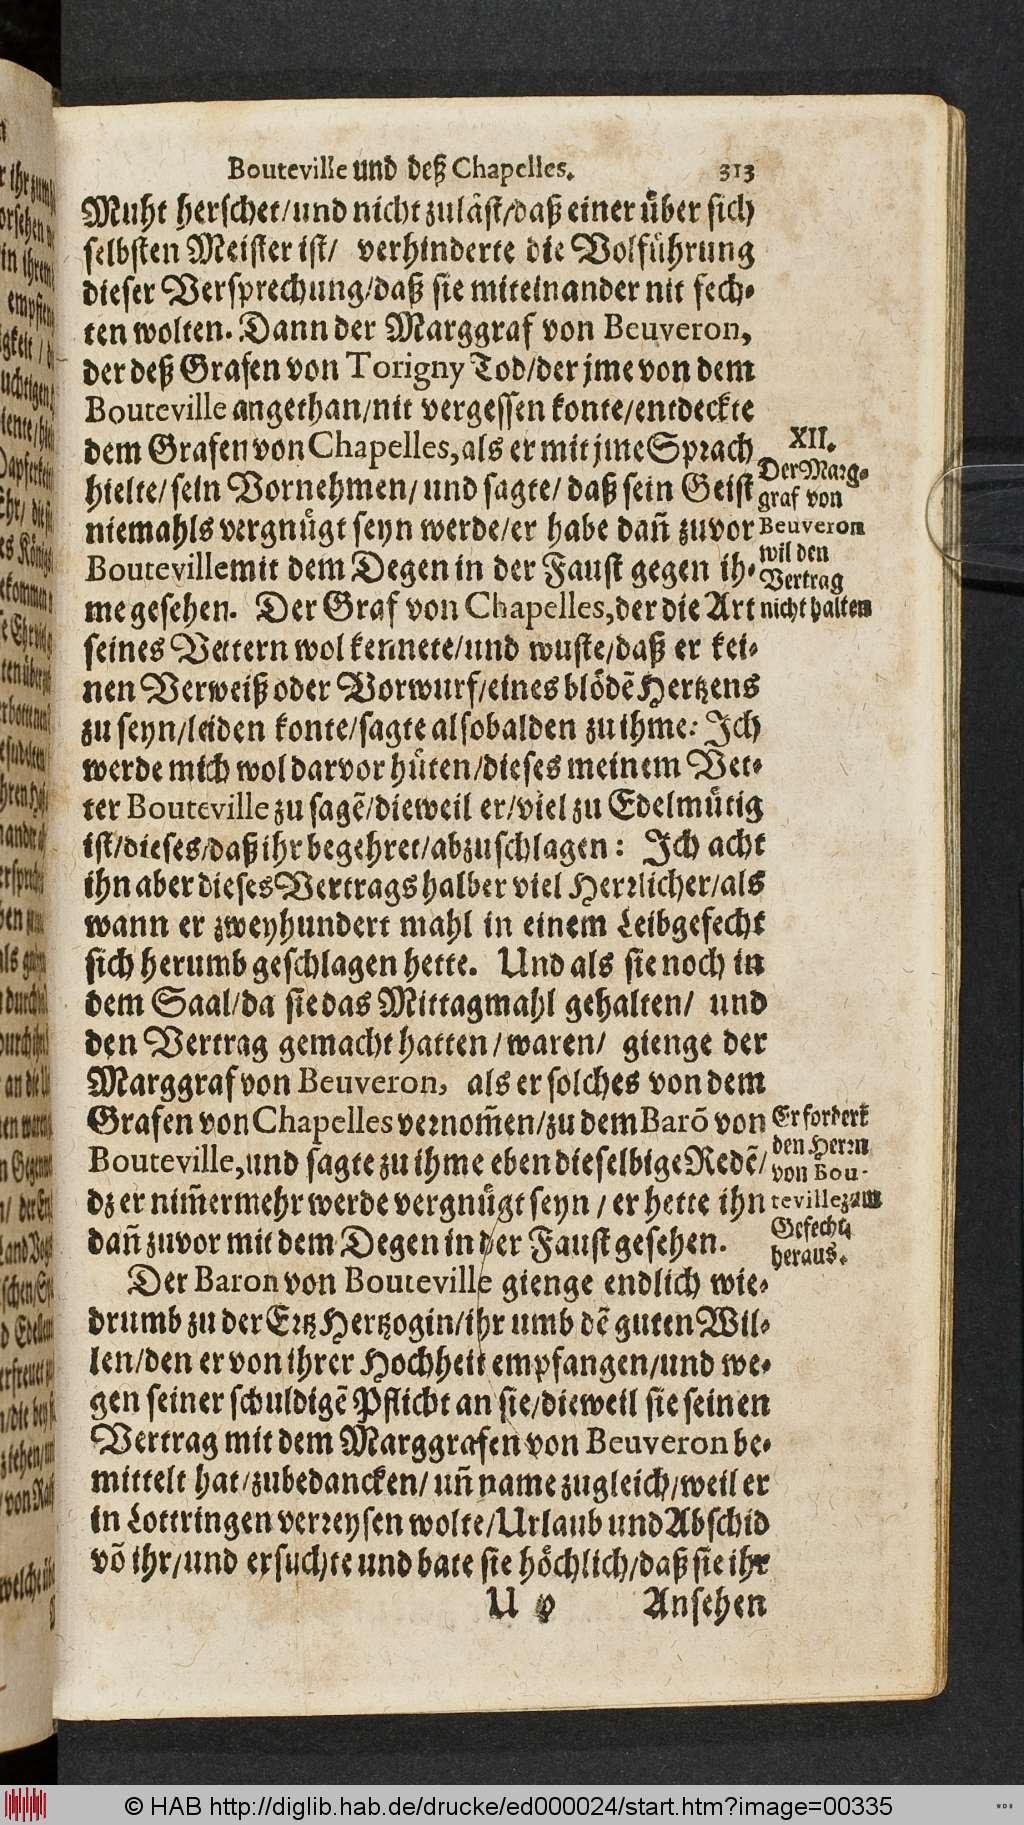 Bouteville und deß Chapelles. 313
Muht herschet/und nicht zuläst/daß einer über sich
selbsten Meister ist/ verhinderte die Volführung
dieser Versprechung/daß sie miteinander nit fech-
ten wolten. Dann der Marggraf von Beuveron,
der deß Grafen von Torigny Tod/der jme von dem
Bouteville angethan/nit vergessen konte/entdeckte
dem Grafen von Chapelles, als er mit jme Sprach
hielte/sein Vornehmen/ und sagte/ daß sein Geist
niemahls vergnügt seyn werde/er habe dañ zuvor
Bouteville mit dem Degen in der Faust gegen ih-
me gesehen. Der Graf von Chapelles, der die Art
seines Vettern wol kennete/und wuste/daß er kei-
nen Verweiß oder Vorwurf/eines blödẽ Hertzens
zu seyn/leiden konte/sagte alsobalden zu ihme: Ich
werde mich wol darvor hüten/dieses meinem Vet-
ter Bouteville zu sagẽ/dieweil er/viel zu Edelmütig
ist/dieses/daß ihr begehret/abzuschlagen: Ich acht
ihn aber dieses Vertrags halber viel Herrlicher/als
wann er zweyhundert mahl in einem Leibgefecht
sich herumb geschlagen hette. Und als sie noch in
dem Saal/da sie das Mittagmahl gehalten/ und
den Vertrag gemacht hatten/waren/ gienge der
Marggraf von Beuveron, als er solches von dem
Grafen von Chapelles vernom̃en/zu dem Barõ von
Bouteville, und sagte zu ihme eben dieselbige Redẽ/
dz er nim̃ermehr werde vergnügt seyn/ er hette ihn
dañ zuvor mit dem Degen in der Faust gesehen.
Der Baron von Bouteville gienge endlich wie-
drumb zu der Ertz Hertzogin/ihr umb dẽ guten Wil-
len/den er von ihrer Hochheit empfangen/und we-
gen seiner schuldigẽ Pflicht an sie/dieweil sie seinen
Vertrag mit dem Marggrafen von Beuveron be-
mittelt hat/zubedancken/ uñ name zugleich/weil er
in Lottringen verreysen wolte/Urlaub und Abschid
võ ihr/und ersuchte und bate sie höchlich/daß sie ihr
U Ansehen
XII.
Der Marg-
graf von
Beuveron
wil den
Vertrag
nicht halten
Er fordert
den Herrn
von Bou-
teville zum
Gefecht
heraus.
© HAB http://diglib.hab.de/drucke/ed000024/start.htm?image=00335